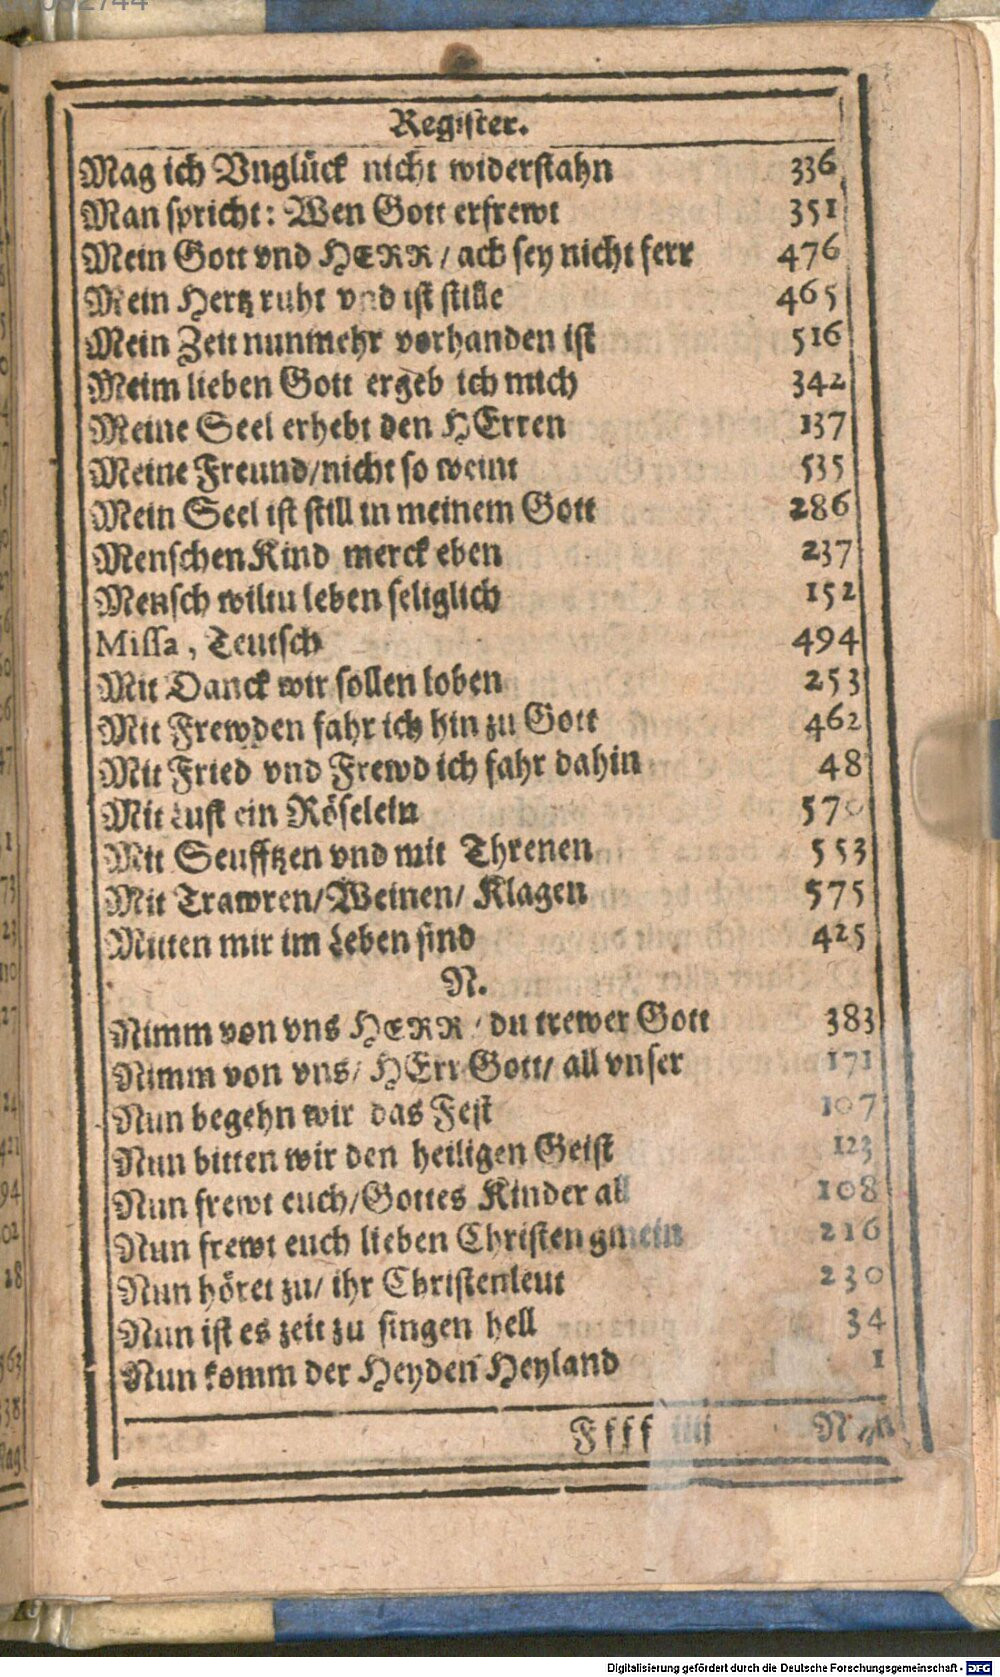 Register.
Mag ich Vnglück nicht widerstahn 336
Man spricht: Wen Gott erfrewt 351
Mein Gott vnd HERR / ach sey nicht ferr 476
Mein Hertz ruht vnd ist stille 465
Mein Zeit nunmehr vorhanden ist 516
Meim lieben Gott ergeb ich mich 342
Meine Seel erhebt den HErren 137
Meine Freund/nicht so weint 535
Mein Seel ist still in meinem Gott 286
Menschen Kind merck eben 237
Mensch wiltu leben seliglich 152
Missa, Teutsch 494
Mit Danck wir sollen loben 253
Mit Frewden fahr ich hin zu Gott 462
Mit Fried vnd Frewd ich fahr dahin 48
Mit Lust ein Röselein 570
Mit Seufftzen vnd mit Threnen 553
Mit Trawren/Weinen/ Klagen 575
Mitten mir im Leben sind 425
N.
Nimm von vns HERR / du trewer Gott 383
Nimm von vns/ HErr Gott/ all vnser 171
Nun begehn wir das Fest 107
Nun bitten wir den heiligen Geist 123
Nun frewt euch/Gottes Kinder all 108
Nun frewt euch lieben Christen gmein 216
Nun höret zu/ ihr Christenleut 230
Nun ist es zeit zu singen hell 34
Nun komm der Heyden Heyland 1
Ffff iiij Nun
Digitalisierung gefördert durch die Deutsche Forschungsgemeinschaft - DFG